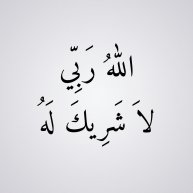 اللهُ رَبِّي
لاَ شَرِيكَ لَهُ